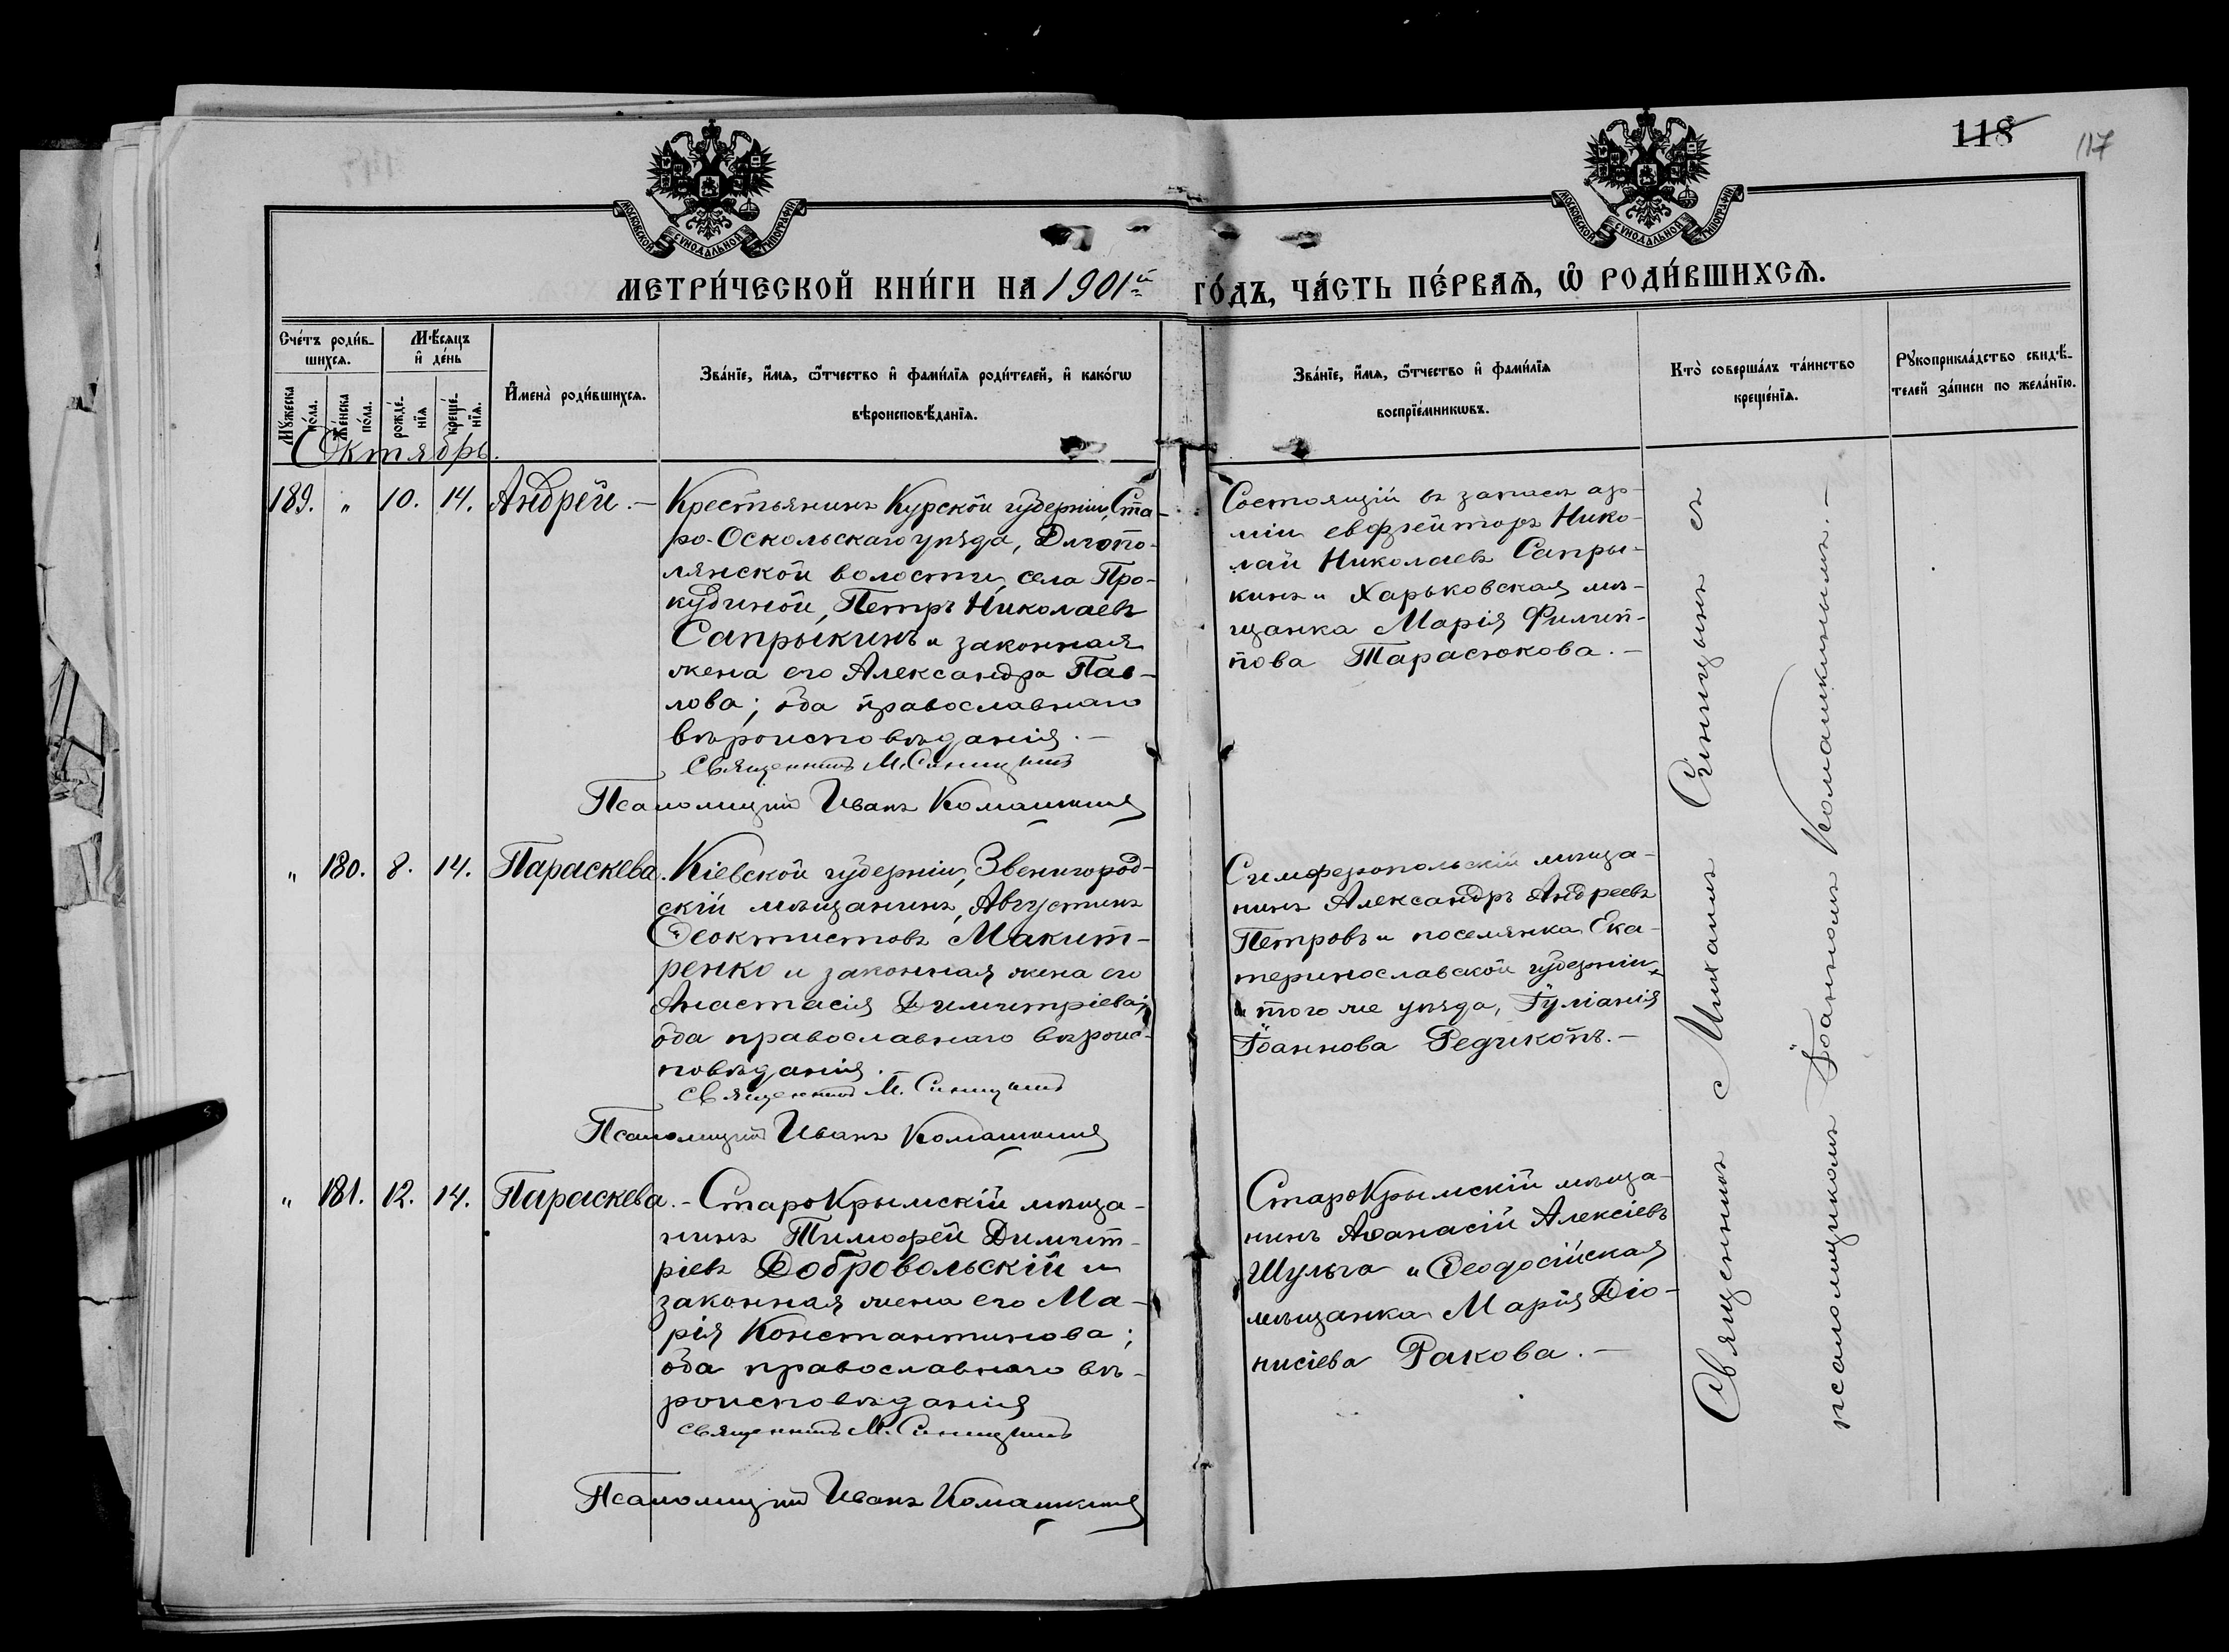 118
117
МОСКОВСКОЙ СѴНОДАЛЬНОЙ ТИПОГРАФІИ
МОСКОВСКОЙ СѴНОДАЛЬНОЙ ТИПОГРАФІИ
МЕТРИ́ЧЕСКОЙ КНИ́ГИ НА 1901й ГО́ДЪ, ЧА́СТЬ ПЕ́РВАѦ, Ѡ РОДИ́ВШИХСѦ.
Сче́тъ роди́в-
шихсѧ.
Мꙋ́жеска по́ла.
Же́нска по́ла.
Мѣ́сѧцъ
и҆ де́нь
рожде́-
нїѧ
креще́-
нїѧ.
И҆мена̀ роди́вшихсѧ.
Зва́нїе, и҆́мѧ, ѻ҆́тчество и҆ фами́лїѧ роди́телей, и҆ како́гѡ
вѣроисповѣ́данїѧ.
Зва́нїе, и҆́мѧ, ѻ҆́тчество и҆ фами́лїѧ
воспрїе́мникѡвъ.
Кто̀ соверша́лъ та́инство
креще́нїѧ.
Рꙋкоприкла́дство свидѣ́-
телей за́писи по жела́нїю.
Октябрь.
189. " 10. 14. Андрей. —
Крестьянинъ Курской губерніи, Ста-
ро-Оскольскаго уѣзда, Длгопо-
лянской волости, села Про-
кудиной, Петръ Николаевъ
Сапрыкинъ и законная
жена его Александра Пав-
лова; оба православнаго
вѣроисповѣданія. —
Священникъ М. Синицынъ
Псаломщикъ Иванъ Комашкинъ
Состоящій въ запасѣ ар-
міи евфрейторъ Нико-
лай Николаевъ Сапры-
кинъ и Харьковская мѣ-
щанка Марія Филип-
пова Тарасюкова. —
" 180. 8. 14. Параскева.
Кіевской губерніи, Звенигород-
скій мѣщанинъ, Августинъ
Ѳеоктистовъ Макит-
ренко и законная жена его
Анастасія Димитріева;
оба православнаго вѣроис-
повѣданія.
Священникъ М. Синицынъ
Псаломщикъ Иванъ Комашкинъ
Симферопольскій мѣща-
нинъ Александръ Андреевъ
Петровъ и поселянка Ека-
теринославской губерніи
и того же уѣзда, Іуліанія
Іоаннова Редикопъ. —
" 181. 12. 14. Параскева. —
СтароКрымскій мѣща-
нинъ Тимофей Димит-
ріевъ Добровольскій и
законная жена его Ма-
рія Константинова;
оба православнаго вѣ-
роисповѣданія
Священникъ М. Синицынъ
Псаломщикъ Иванъ Комашкинъ
СтароКрымскій мѣща-
нинъ Аѳанасій Алексіевъ
Шульга и Ѳеодосійская
мѣщанка Марія Діо-
нисіева Ракова. —
Священникъ Михаилъ Синицынъ съ
псаломщикомъ Іоанномъ Комашкинымъ. —